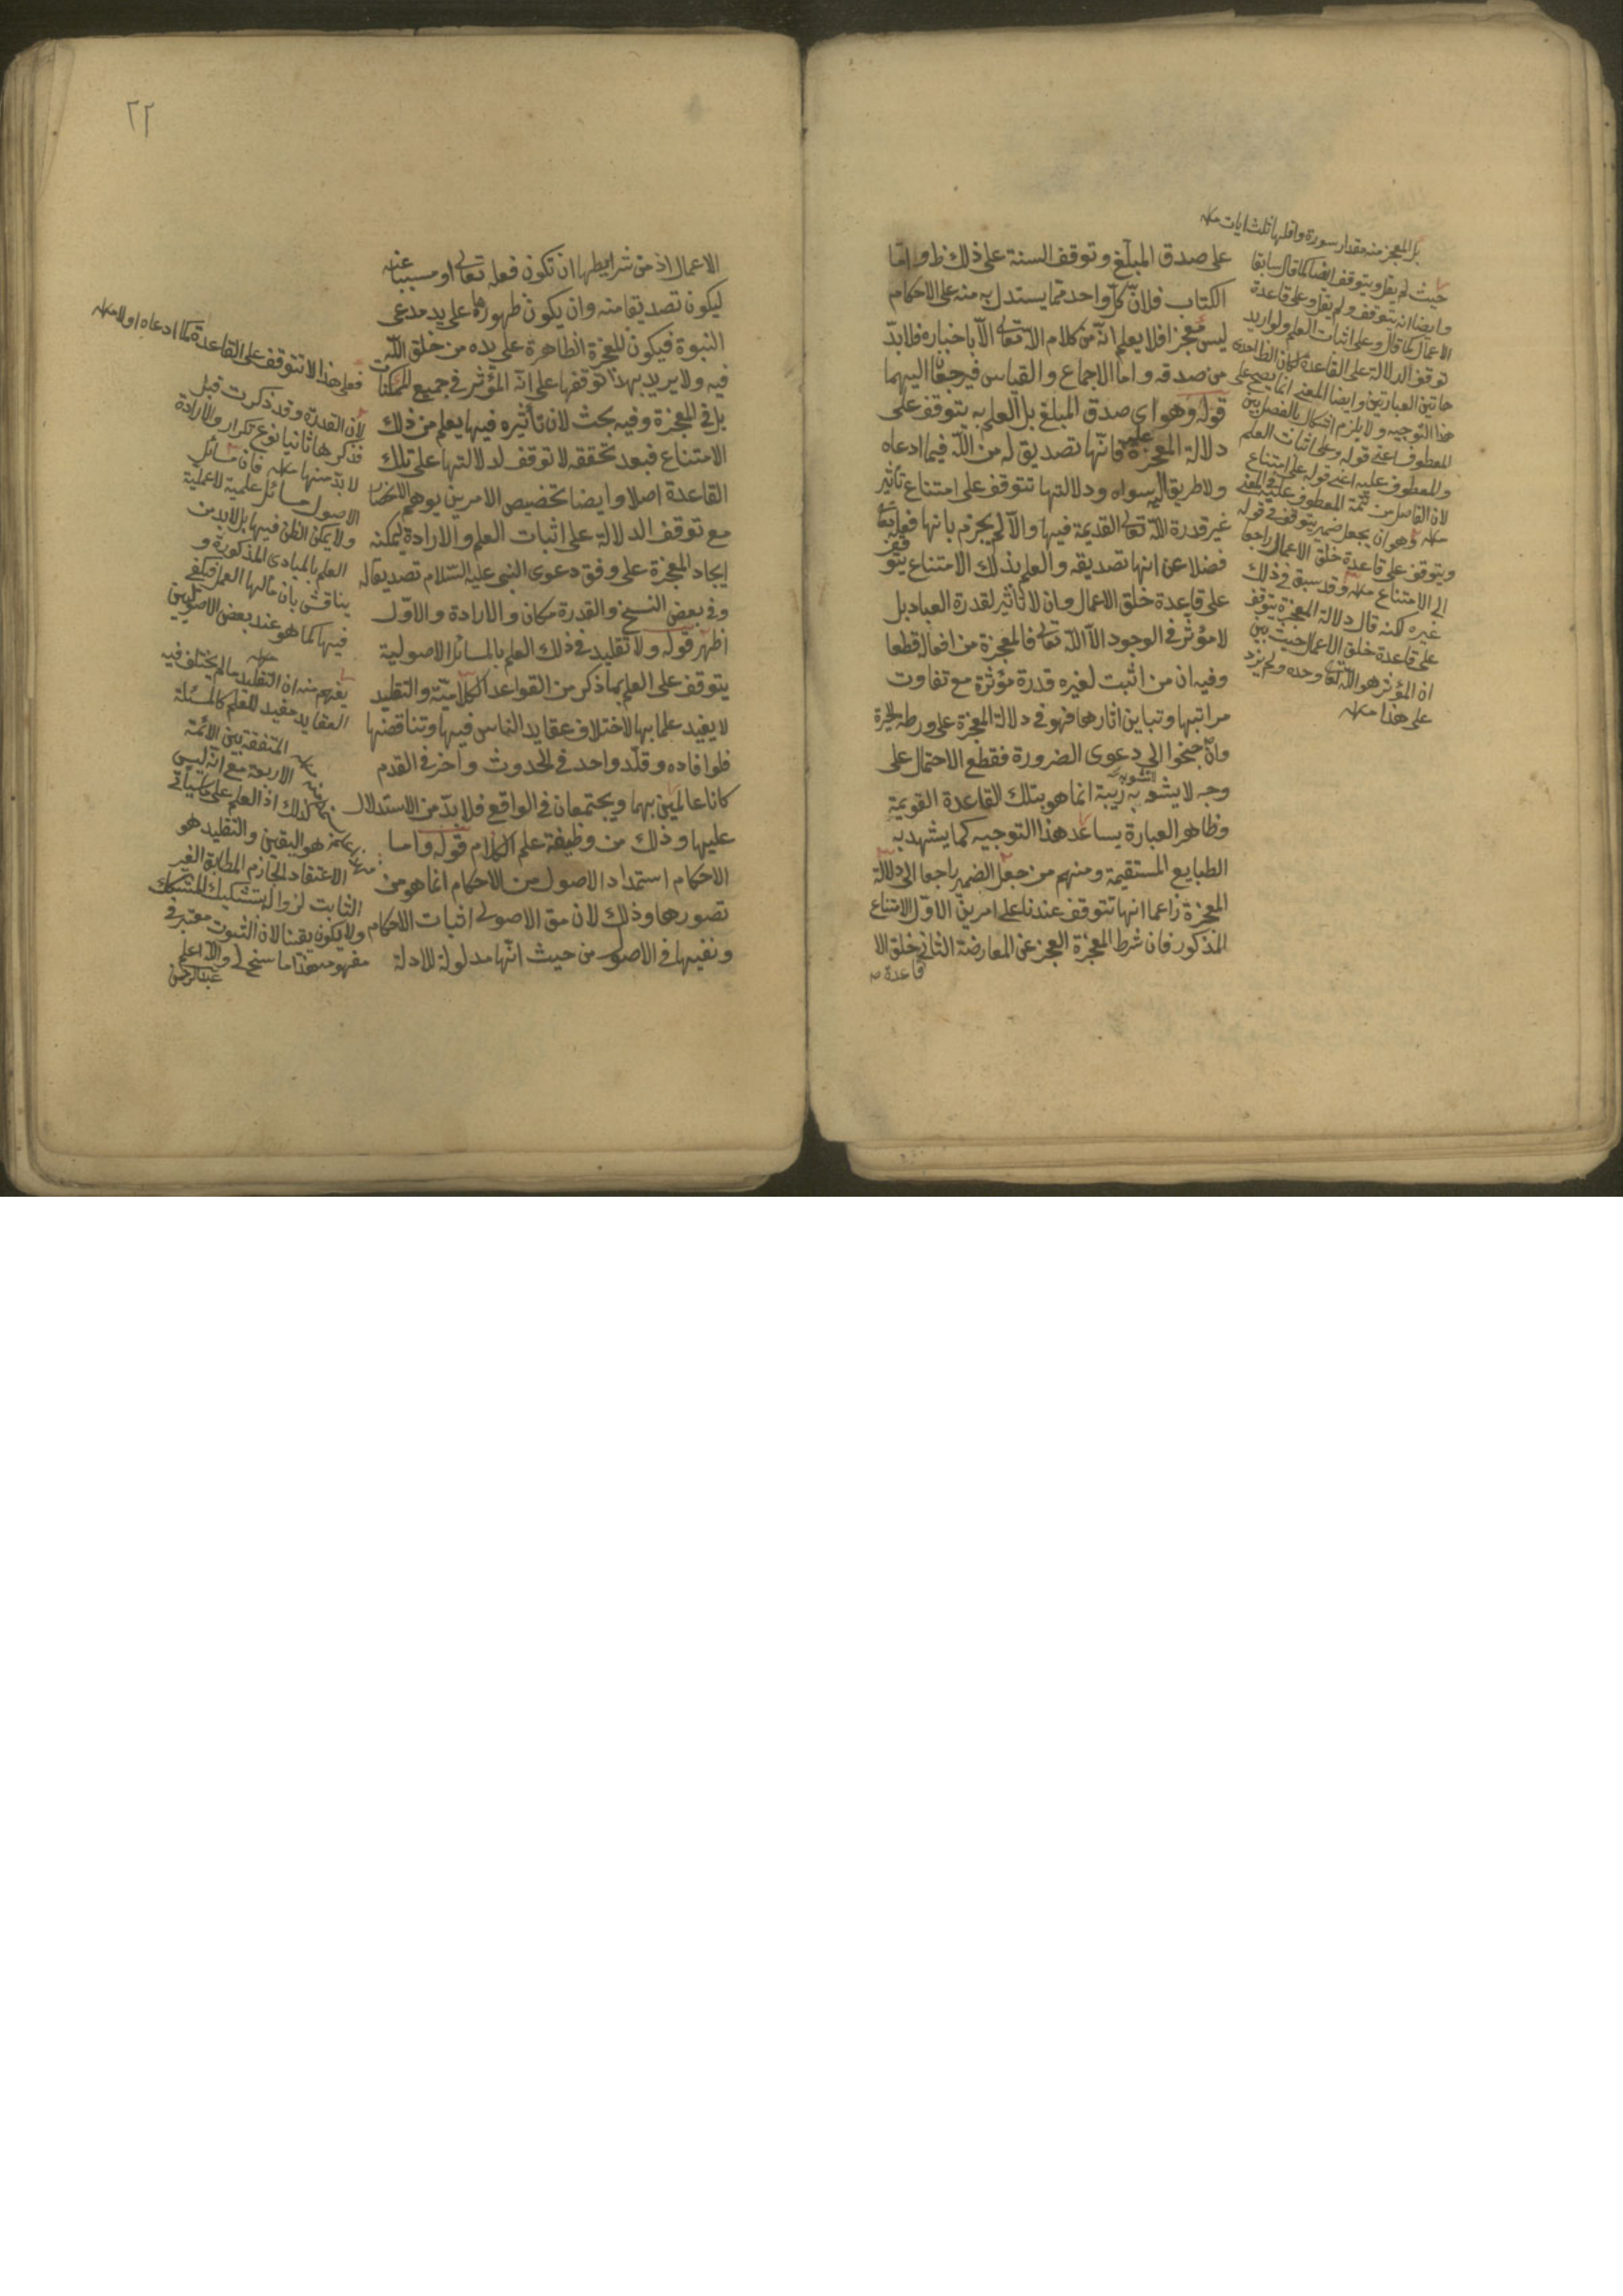 على صدق المبلّغ وتوقف السنة على ذلك ظ واما
الكتاب فلانّ كلّ واحد مما يستدل به منه على الاحكام
ليس بمعجز فلا يعلم انّه من كلام الله تعالى الّا باخباره فلا بدّ
من صدقه واما الاجماع والقياس فيرجعان اليهما
قوله وهو اى صدق المبلغ بل العلم به يتوقف على
دلالة المعجزة عليه فانّها تصديق له من الله فيما ادعاه
ولا طريق اليه سواه ودلالتها تتوقف على امتناع تأثير
غير قدرة الله تعالى القديمة فيها والّا لم يجزم بانها فعله تعالى
فضلا عن انها تصديقه والعلم بذلك الامتناع يتوقف
على قاعدة خلق الاعمال وان لا تأثير لقدرة العباد بل
لا مؤثر في الوجود الّا الله تعالى فالمعجزة من افعاله قطعا
وفيه ان من اثبت لغيره قدرة مؤثرة مع تفاوت
مراتبها وتباين اثارها فهو في دلالة المعجزة على ورطة الحيرة
وان جنحوا الى دعوى الضرورة فقطع الاحتمال على
وجه لا يشوبه ريبة انما هو بتلك القاعدة القويمة
وظاهر العبارة يساعد هذا التوجيه كما يشهد به
الطبايع المستقيمة ومنهم من جعل الضمير راجعا الى دلالة
المعجزة زاعما انها تتوقف عندنا على امرين الاوّل الامتناع
المذكور فان شرط المعجزة العجز عن المعارضة الثاني خلق الا
قاعدة
بل المعجز منه مقدار سورة واقلها ثلث ايات منه
حيث لم يقل ويتوقف ايضا كما قال سابقا
وايضا انه يتوقف ولم يقل وعلى قاعدة
الاعمال كما قال وعلى اثبات العلم ولو اريد
توقف الدلالة على القاعدة لكان الظاهر
هاتين العبارتين وايضا المعنى انما يصح على
هذا التوجيه ولا يلزم اشكال بالفصل بين
المعطوف اعنى قوله وعلى اثبات العلم
والمعطوف عليه اعنى قوله على امتناع
لان الفاصل من تتمة المعطوف عليه في المعنى
منه وهو ان يجعل ضمير يتوقف في قوله
ويتوقف على قاعدة خلق الاعمال راجعا
الى الامتناع منه وقد سبق في ذلك
غيره لكنه قال دلالة المعجزة يتوقف
على قاعدة خلق الاعمال حيث بين
ان المؤثر هو الله تعالى وحده ولم يزد
على هذا منه
٢٢
الاعمال اذ من شرايطها ان تكون فعله تعالى او مسببا عنه
ليكون تصديقا منه وان يكون ظهورها على يد مدعى
النبوة فيكون للمعجزة الظاهرة على يده من خلق الله
فيه ولا يريد بهذا توقفها على انّه المؤثر في جميع الممكنات
بل في المعجزة وفيه بحث لان تأثيره فيها يعلم من ذلك
الامتناع فبعد تحققه لا توقف لدلالتها على تلك
القاعدة اصلا وايضا تخصيص الامرين يوهم الانحصار
مع توقف الدلالة على اثبات العلم والارادة ليمكنه
ايجاد المعجزة على وفق دعوى النبى عليه السّلام تصديقا له
وفي بعض النسخ والقدرة مكان والارادة والاوّل
اظهر قوله ولا تقليد في ذلك العلم بالمسائل الاصولية
يتوقف على العلم بما ذكر من القواعد الكلاميّة والتقليد
لا يفيد علما بها لاختلاف عقايد الناس فيها وتناقضها
فلو افاده وقلّد واحد في الحدوث واخر في القدم
كانا عالمين بهما ويجتمعان في الواقع فلا بدّ من الاستدلال
عليها وذلك من وظيفة علم الكلام قوله واما
الاحكام استمداد الاصول من الاحكام انما هو من
تصورها وذلك لان مق الاصولى اثبات الاحكام
ونفيها في الاصول من حيث انّها مدلولة للادلة
فعلى هذا لا تتوقف على القاعدة كما ادعاه اولا منه
لان القدرة وقد ذكرت قبل
فذكرها ثانيا نوع تكرار والارادة
لا بد منها منه فان مسائل
الاصول مسائل علمية لا عملية
ولا يمكن الظن فيها بل لا بد من
العلم بالمبادى المذكورة و
يناقش بان مآلها العمل فيكفى
فيها كما هو عند بعض الاصوليين
منه
يفهم منه ان التقليد ما لم يختلف فيه
العقايد مفيد للعلم كالمسئلة
المتفقة بين الائمة
الاربعة مع انه ليس
كذلك اذ العلم على ما سيأتى
هو اليقين والتقليد هو
الاعتقاد الجازم المطابق الغير
الثابت لزواله بتشكيك المشكك
ولا يكون يقينا لان الثبوت معتبر في
مفهومه هذا ما سنح لى والله اعلم
عبد الرحمن